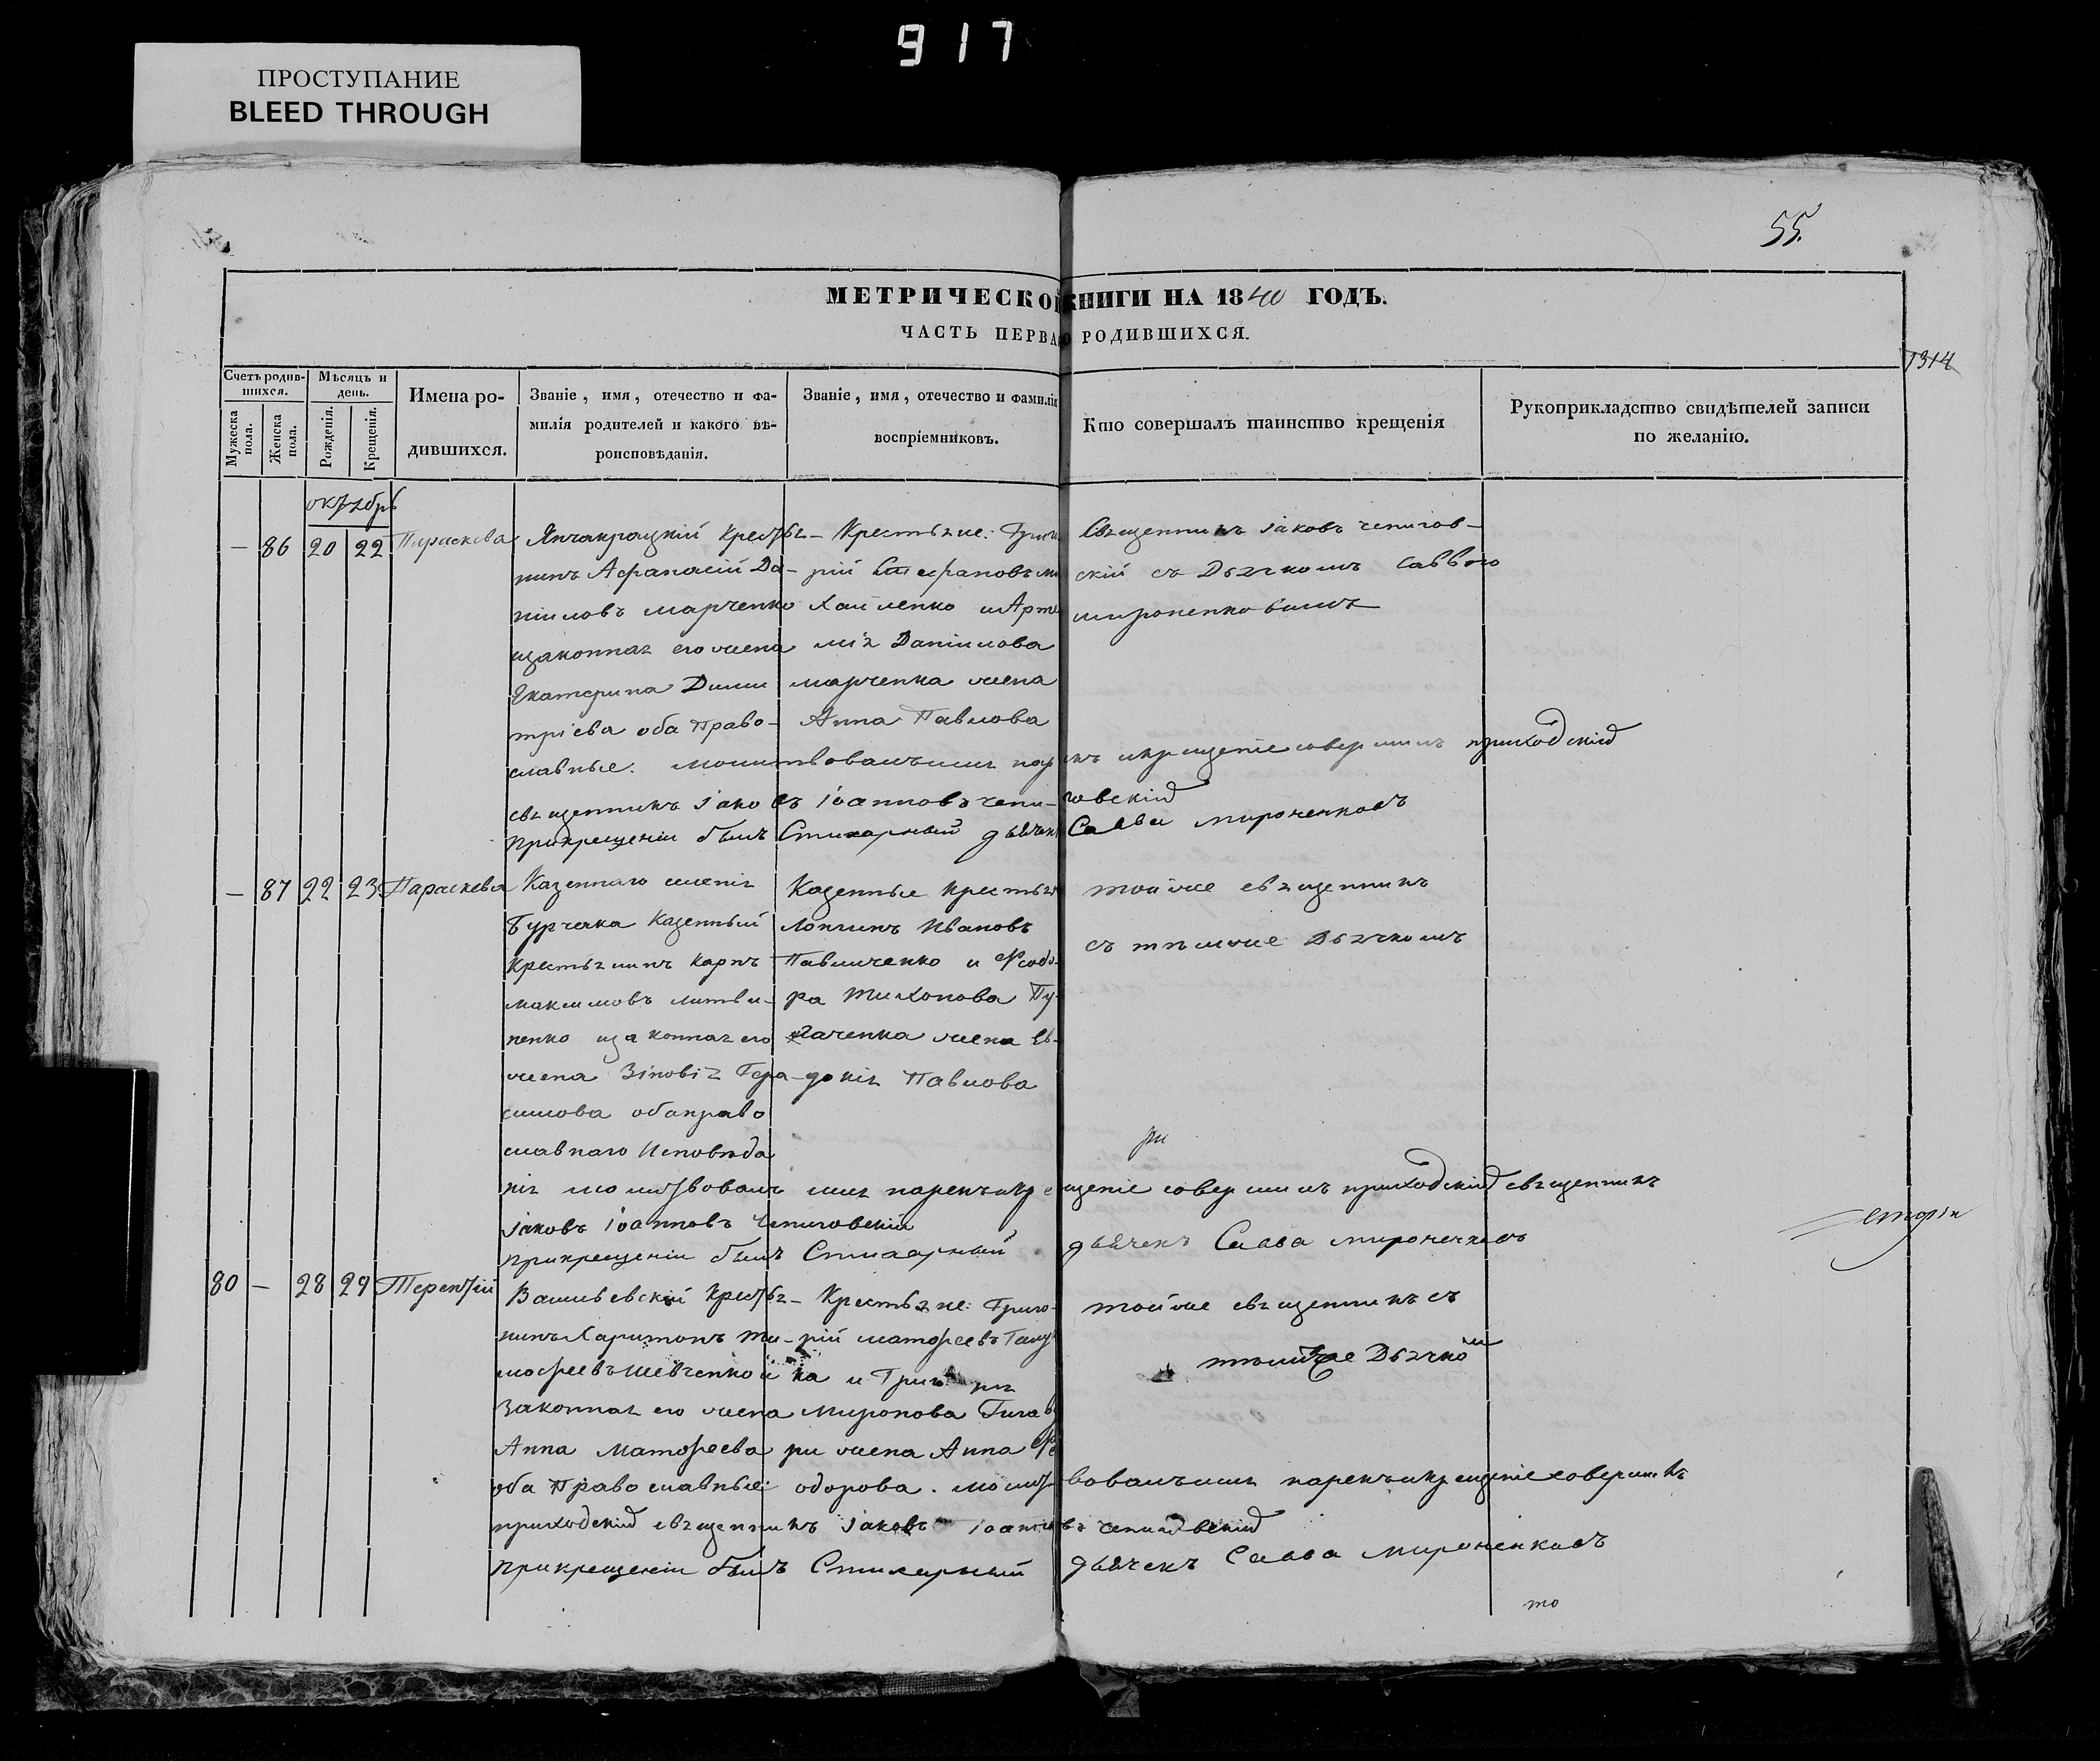 917
ПРОСТУПАНИЕ
BLEED THROUGH
55.
МЕТРИЧЕСКОЙ КНИГИ НА 1840 ГОДЪ.
ЧАСТЬ ПЕРВАЯ О РОДИВШИХСЯ.
1314
Счетъ родив-
шихся.
Мужеска пола.
Женска пола.
Мѣсяцъ и
день.
Рожденія.
Крещенія.
Имена ро-
дившихся.
Званіе, имя, отечество и фа-
милія родителей и какого вѣ-
роисповѣданія.
Званіе, имя, отечество и фамилія
воспріемниковъ.
Кто совершалъ таинство крещенія
Рукоприкладство свидѣтелей записи
по желанію.
октябрь
— 86 20 22 Параскева
Янчакрацкій Крестья-
нинъ Афанасій Да-
ніиловъ Марченко
изаконная его жена
Екатерина Дими
тріева оба Право-
славные.
Крестьяне: Григо
рій Стефановъ Ми
хайленко и Арте
мія Даніилова
Марченка жена
Анна Павлова
Священникъ Іаковъ Чепигов-
скій съ Дьячкомъ Саввою
Мироненковымъ
молитвовалъ имя нарекъ икрещеніе совершилъ приходскій
священникъ Іаковъ Іоанновъ Чепи-говскій
прикрещеніи былъ Стихарный дьячекъ Савва Мироненковъ
— 87 22 23 Параскева
Казеннаго имѣнія
Бурчака Казенный
Крестьянинъ Карпъ
Максимовъ Литви-
ненко изаконная его
жена Зіновія Гера-
симова обаправо
славнаго Исповѣда
Казенные Крестья
Логгинъ Ивановъ
Павличенко и Ѳеодо-
ра Тихонова Пу-
гаченка жена Ев-
докія Павлова
тойже священникъ
съ тѣмже Дьячкомъ
ри
нія молитвовалъ имя нарекъ икрещеніе совершилъ приходскій священникъ
Іаковъ Іоанновъ Чепиговскій
прикрещеніи былъ Стихарный дьячекъ Савва Мироненковъ
80 — 28 29 Терентій
Васильевскій Крестья-
нинъ Харитонъ Ти-
мофеевъ Шевченко и
Законная его жена
Анна Матфеева
оба Православные:
Крестьяне: Григо-
рій Матфеевъ Галу
ка и
Миронова Гига
ри жена Анна Ѳе
одорова.
тойже священникъ съ
тѣмже Дьячкомъ
молитвовалъ имя нарекъ икрещеніе совершилъ
приходскій священникъ Іаковъ Іоанновъ Чепиговскій
прикрещеніи былъ Стихарный дьячекъ Савва Мироненковъ
то